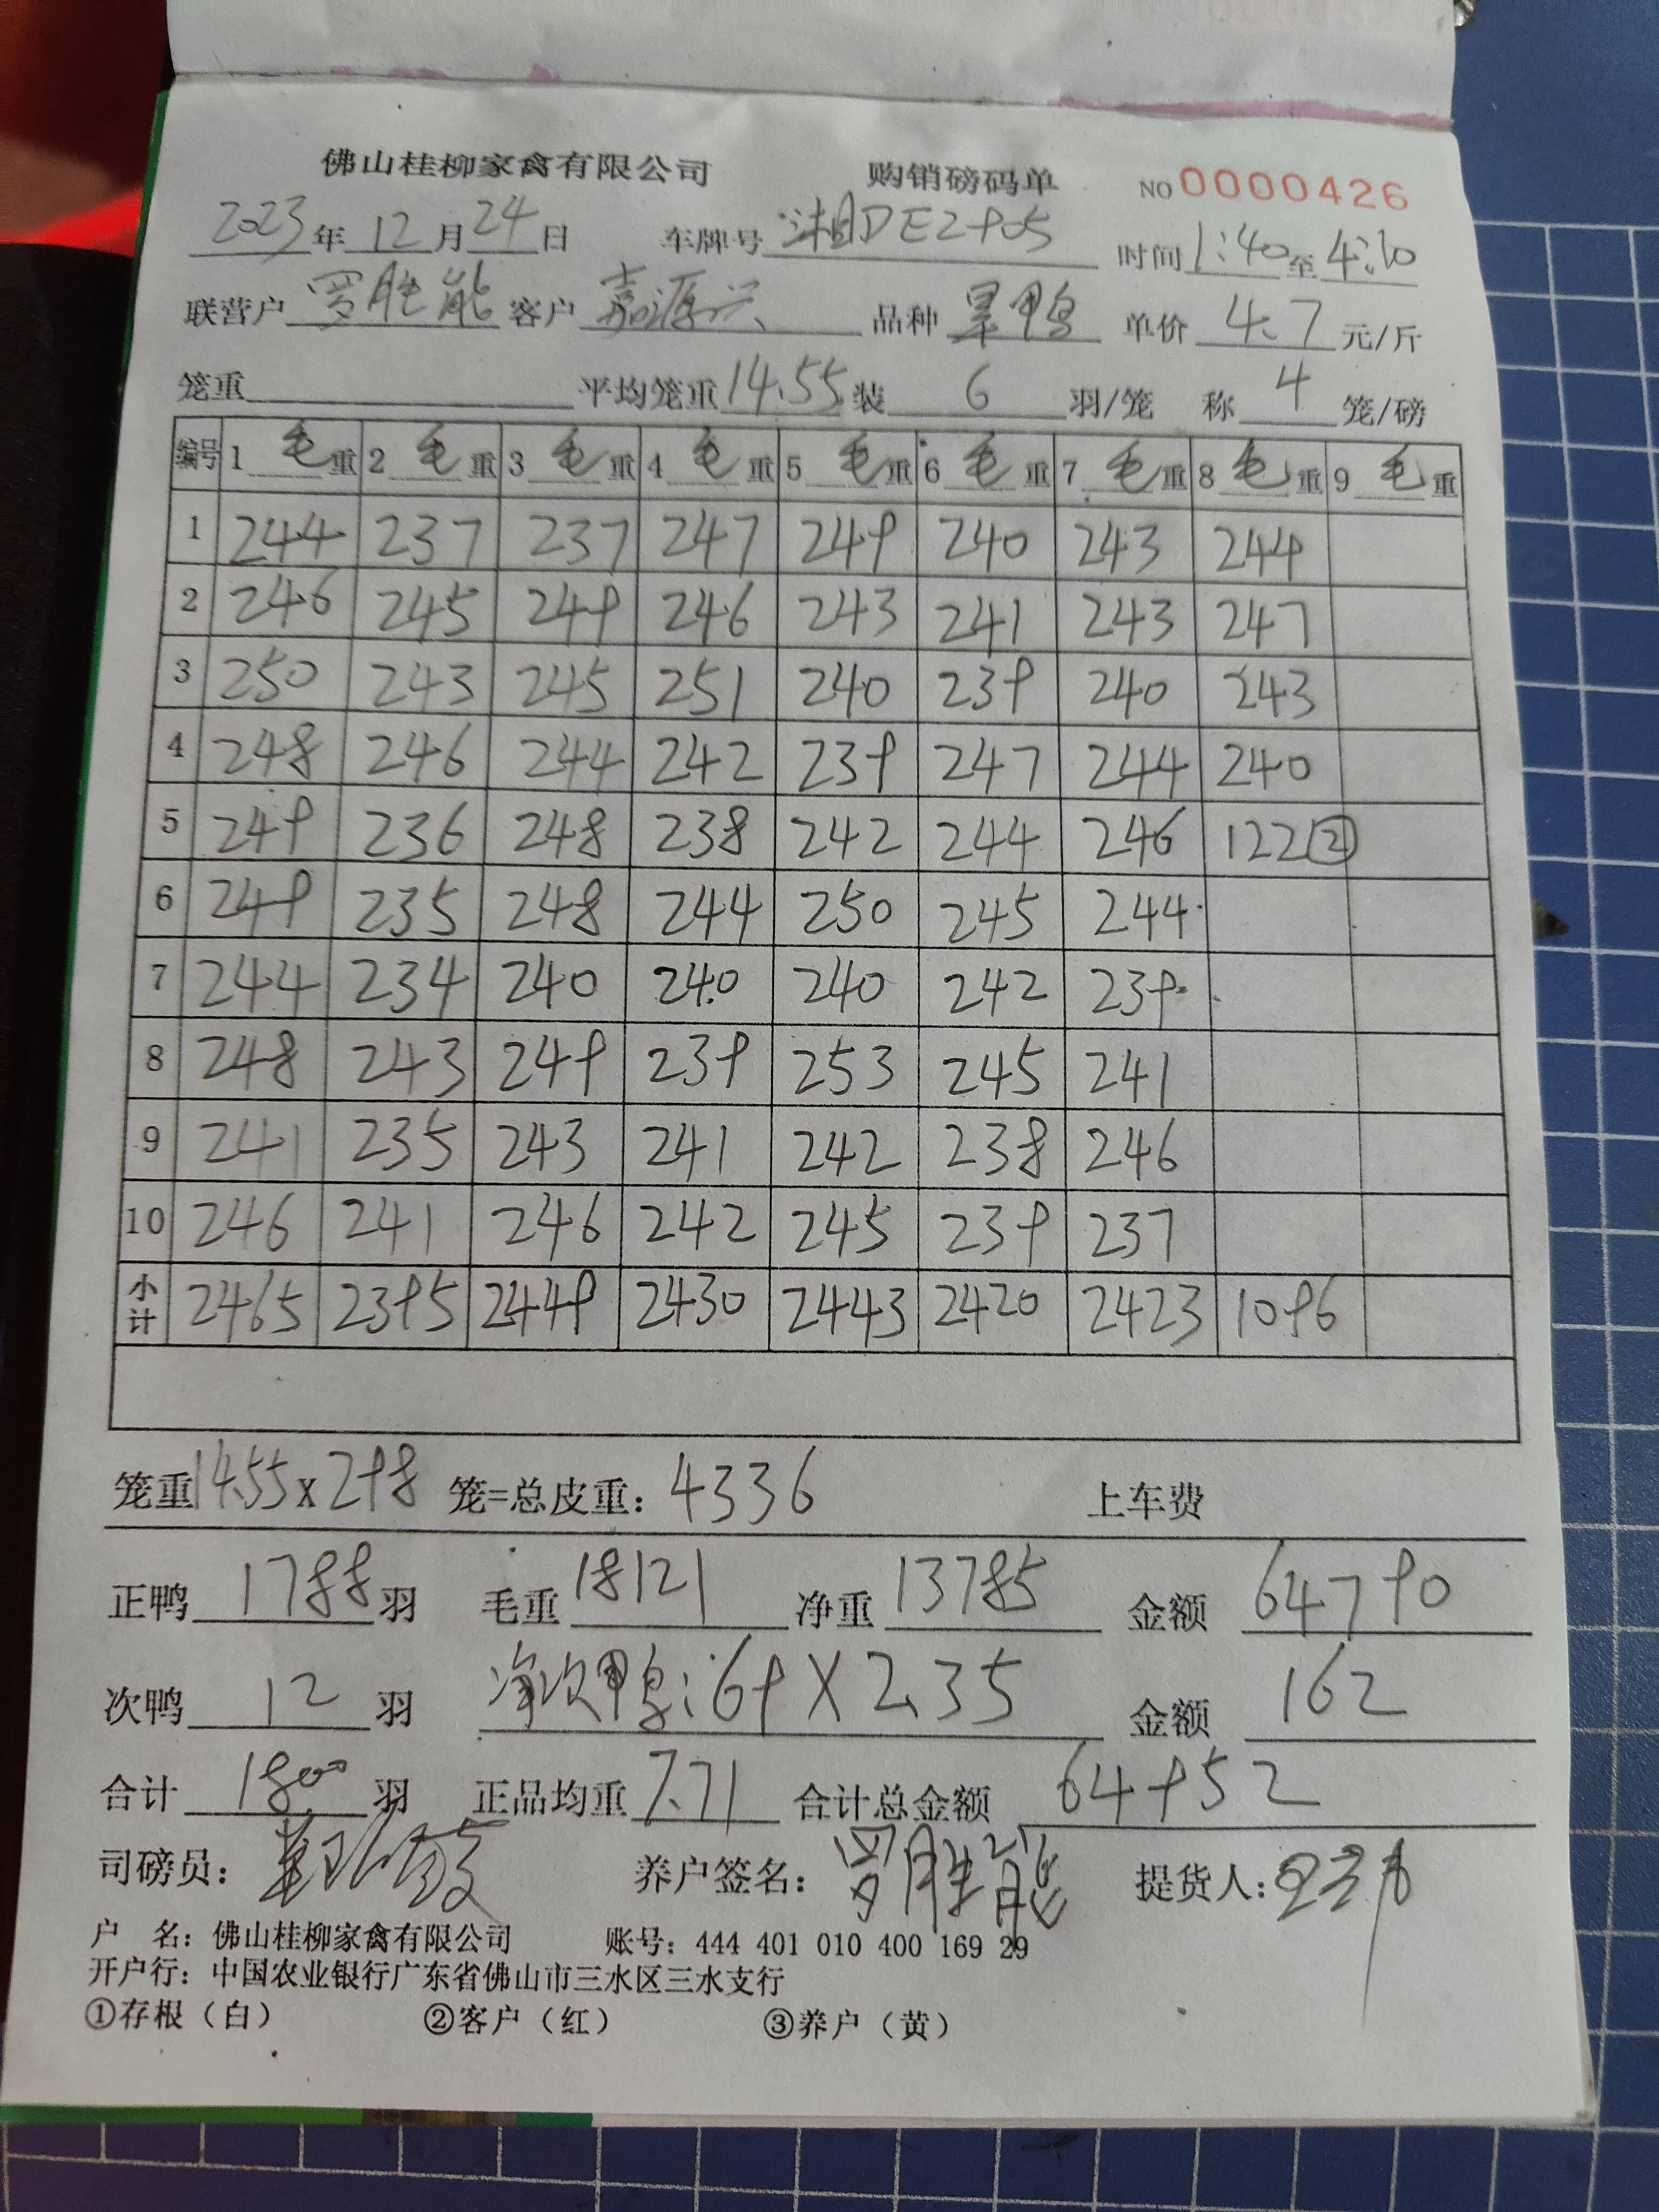 佛山桂柳家禽有限公司 购销磅码单 NO 0000426
2023年12月24日 车牌号 湘DE2905 时间 1:40至4:10
联营户 罗胜能 客户 嘉源兴 品种 鸭 单价 4.7 元/斤
笼重 平均笼重 14.55 装 6 羽/笼 称 4 笼/磅
编号 1 毛重 2 毛重 3 毛重 4 毛重 5 毛重 6 毛重 7 毛重 8 毛重 9 毛重
1 244 237 237 247 249 240 243 244
2 246 245 249 246 243 241 243 247
3 250 243 245 251 240 239 240 243
4 248 246 244 242 239 247 244 240
5 249 236 248 238 242 244 246 122②
6 249 235 248 244 250 245 244
7 244 234 240 240 240 242 239
8 248 243 249 239 253 245 241
9 241 235 243 241 242 238 246
10 246 241 246 242 245 239 237
小计 2465 2395 2449 2430 2443 2420 2423 1096
笼重14.55x298 笼=总皮重: 4336 上车费
正鸭 1788 羽 毛重 18121 净重 13785 金额 64790
次鸭 12 羽 净次鸭:69X2.35 金额 162
合计 1800 羽 正品均重 7.71 合计总金额 64952
司磅员: 养户签名: 罗胜能 提货人:
户 名: 佛山桂柳家禽有限公司 账号: 444 401 010 400 169 29
开户行: 中国农业银行广东省佛山市三水区三水支行
①存根(白) ②客户(红) ③养户(黄)